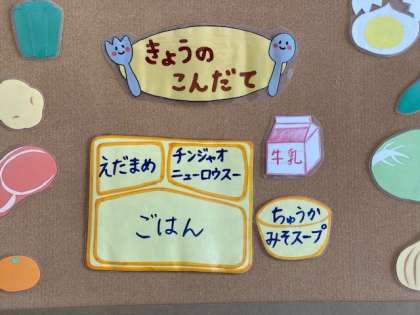 きょうの
こんだて
えだまめ
チンジャオ
ニューロウスー
牛乳
ごはん
ちゅうか
みそスープ